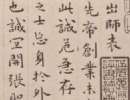 出師表
先帝創業未
此誠危急存
之士忘身於外
也誠宜開張聖